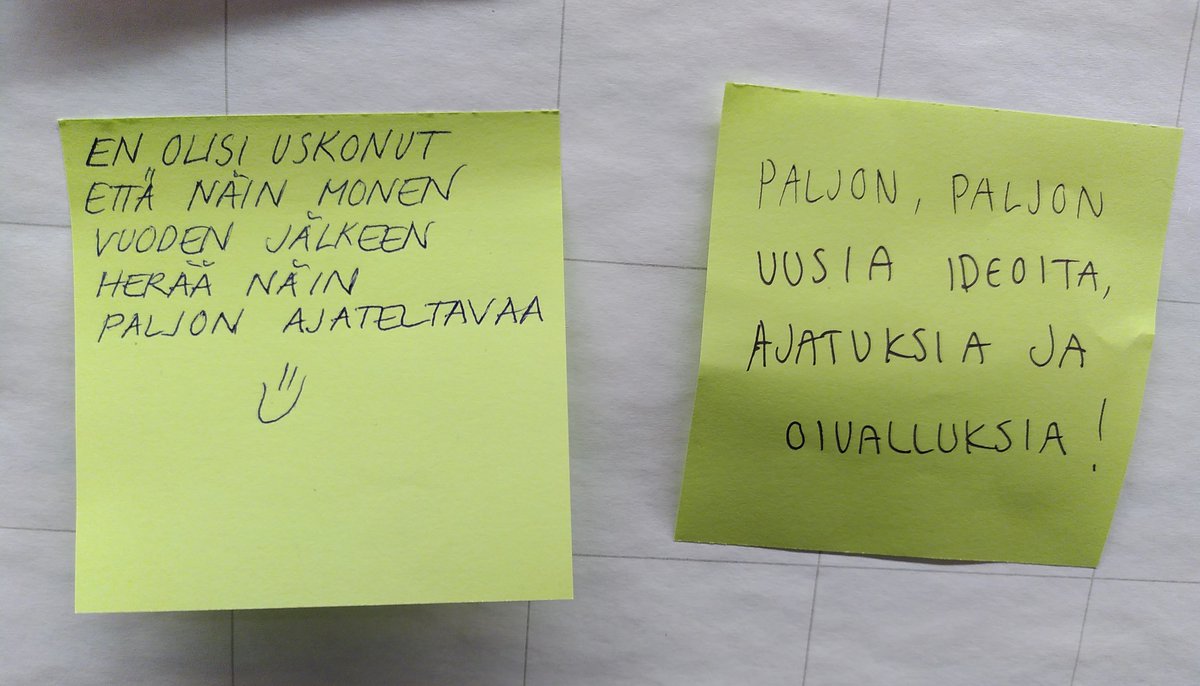 EN OLISI USKONUT
ETTÄ NÄIN MONEN
VUODEN JÄLKEEN
HERÄÄ NÄIN
PALJON AJATELTAVAA
PALJON, PALJON
UUSIA IDEOITA,
AJATUKSIA JA
OIVALLUKSIA!